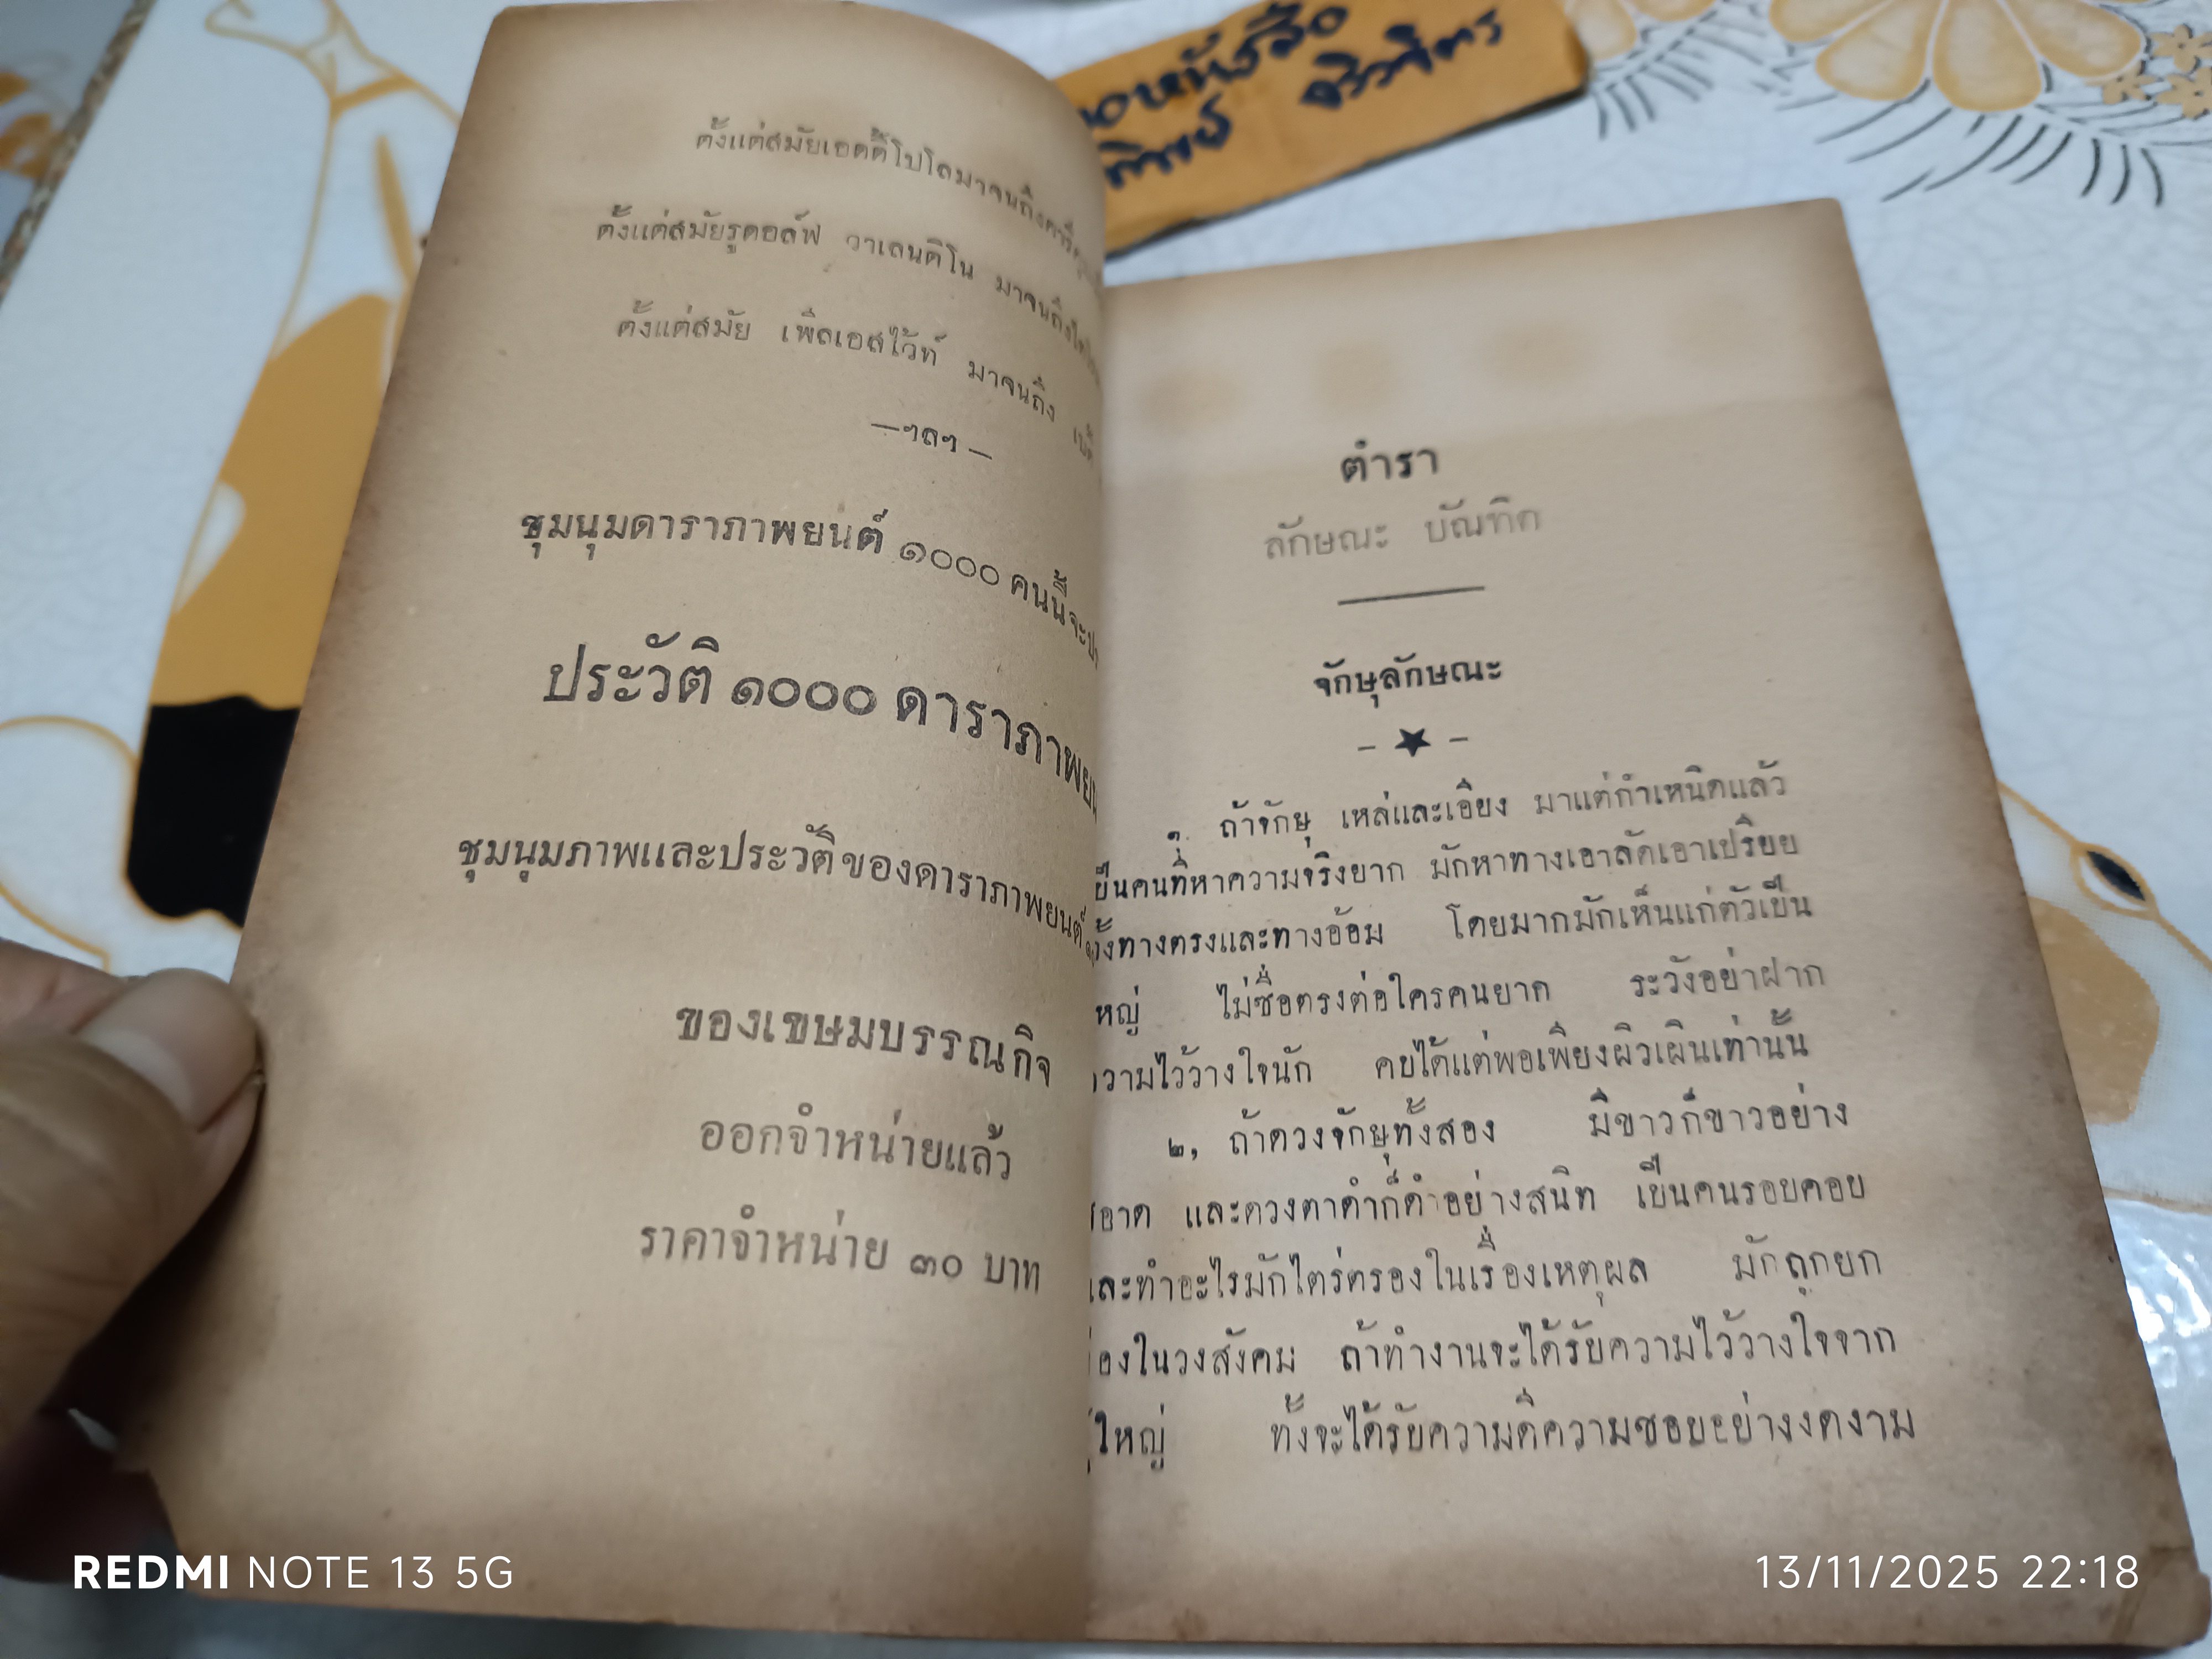 ตั้งแต่สมัยเอดดี้โปโลมาจนถึง
ตั้งแต่สมัยรูดอล์ฟ วาเลนติโน มาจนถึง
ตั้งแต่สมัย เพิลเอสไว้ท์ มาจนถึง
—ฯลฯ—
ชุมนุมดาราภาพยนต์ ๑๐๐๐ คนนี้
ประวัติ ๑๐๐๐ ดาราภาพย
ชุมนุมภาพและประวัติของดาราภาพยนต์
ของเขษมบรรณกิจ
ออกจำหน่ายแล้ว
ราคาจำหน่าย ๓๐ บาท
ตำรา
ลักษณะ บัณฑิต
จักษุลักษณะ
- ★ -
ถ้าจักษุ เหล่และเอียง มาแต่กำเหนิดแล้ว
เป็นคนที่หาความจริงยาก มักหาทางเอาลัดเอาเปรียบ
ทั้งทางตรงและทางอ้อม โดยมากมักเห็นแก่ตัวเป็น
ใหญ่ ไม่ซื่อตรงต่อใครคนยาก ระวังอย่าฝาก
ความไว้วางใจนัก คบได้แต่พอเพียงผิวเผินเท่านั้น
๒, ถ้าดวงจักษุทั้งสอง มีขาวก็ขาวอย่าง
สอาด และดวงตาดำก็ดำอย่างสนิท เป็นคนรอบคอบ
และทำอะไรมักไตร่ตรองในเรื่องเหตุผล มักถูกยก
ย่องในวงสังคม ถ้าทำงานจะได้รับความไว้วางใจจาก
ผู้ใหญ่ ทั้งจะได้รับความดีความชอบอย่างงดงาม
REDMI NOTE 13 5G
13/11/2025 22:18